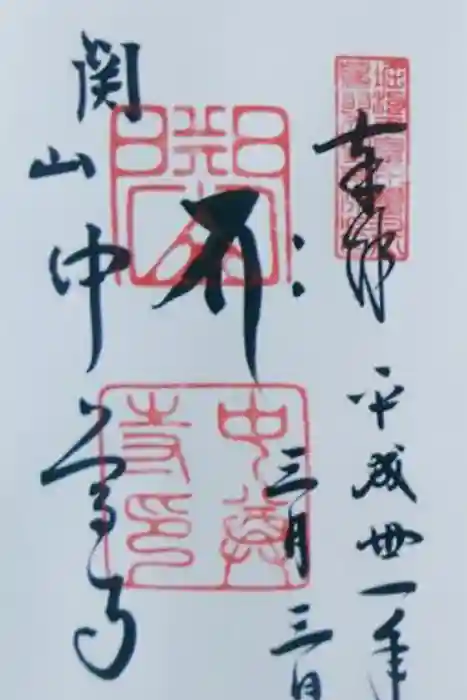 奉拝
平成丗一年
三月三日
中尊
寺印
関山中尊寺